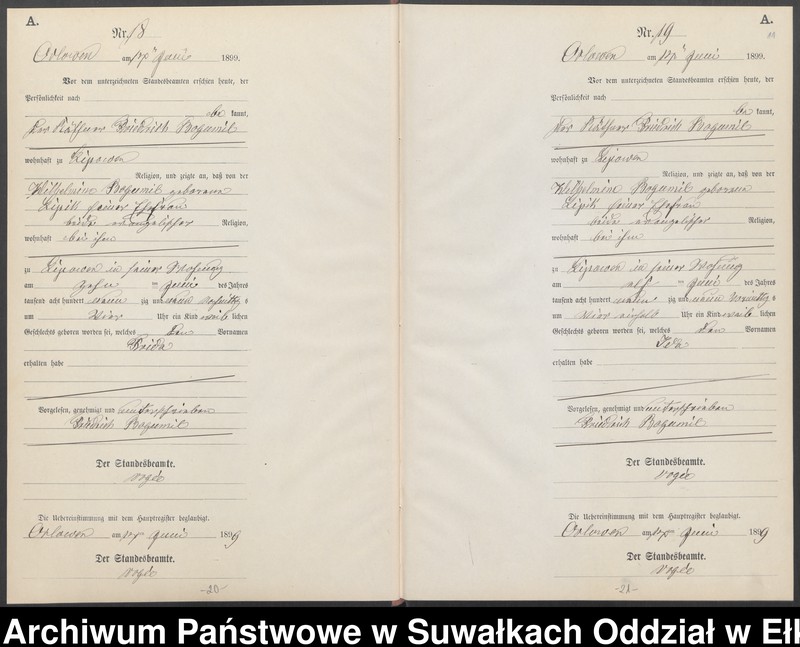 A.
Nr. 18
Orlowen am 12ten Juni 1899.
Vor dem unterzeichneten Standesbeamten erschien heute, der
Persönlichkeit nach
be kannt,
der Käthner Friedrich Bogumil
wohnhaft zu Lipowen
Religion, und zeigte an, daß von der
Wilhelmine Bogumil geborenen
seiner Ehefrau
beide evangelischer Religion,
wohnhaft bei ihm
zu Lipowen in seiner Wohnung
am zehn ten Juni des Jahres
tausend acht hundert neun zig und neun Vormittags
um vier Uhr ein Kind weib lichen
Geschlechts geboren worden sei, welches den Vornamen
Frida
erhalten habe
Vorgelesen, genehmigt und unterschrieben
Friedrich Bogumil
Der Standesbeamte.
Die Uebereinstimmung mit dem Hauptregister beglaubigt.
Orlowen am 12ten Juni 1899
Der Standesbeamte.
-20-
A.
Nr. 19
Orlowen am 12ten Juni 1899.
Vor dem unterzeichneten Standesbeamten erschien heute, der
Persönlichkeit nach
be kannt,
der Käthner Friedrich Bogumil
wohnhaft zu Lipowen
Religion, und zeigte an, daß von der
Wilhelmine Bogumil geborenen
seiner Ehefrau
beide evangelischer Religion,
wohnhaft bei ihm
zu Lipowen in seiner Wohnung
am elf ten Juni des Jahres
tausend acht hundert neun zig und neun Vormittags
um vier Uhr ein Kind weib lichen
Geschlechts geboren worden sei, welches den Vornamen
Ida
erhalten habe
Vorgelesen, genehmigt und unterschrieben
Friedrich Bogumil
Der Standesbeamte.
Die Uebereinstimmung mit dem Hauptregister beglaubigt.
Orlowen am 12ten Juni 1899
Der Standesbeamte.
-21-
Archiwum Państwowe w Suwałkach Oddział w Ełk